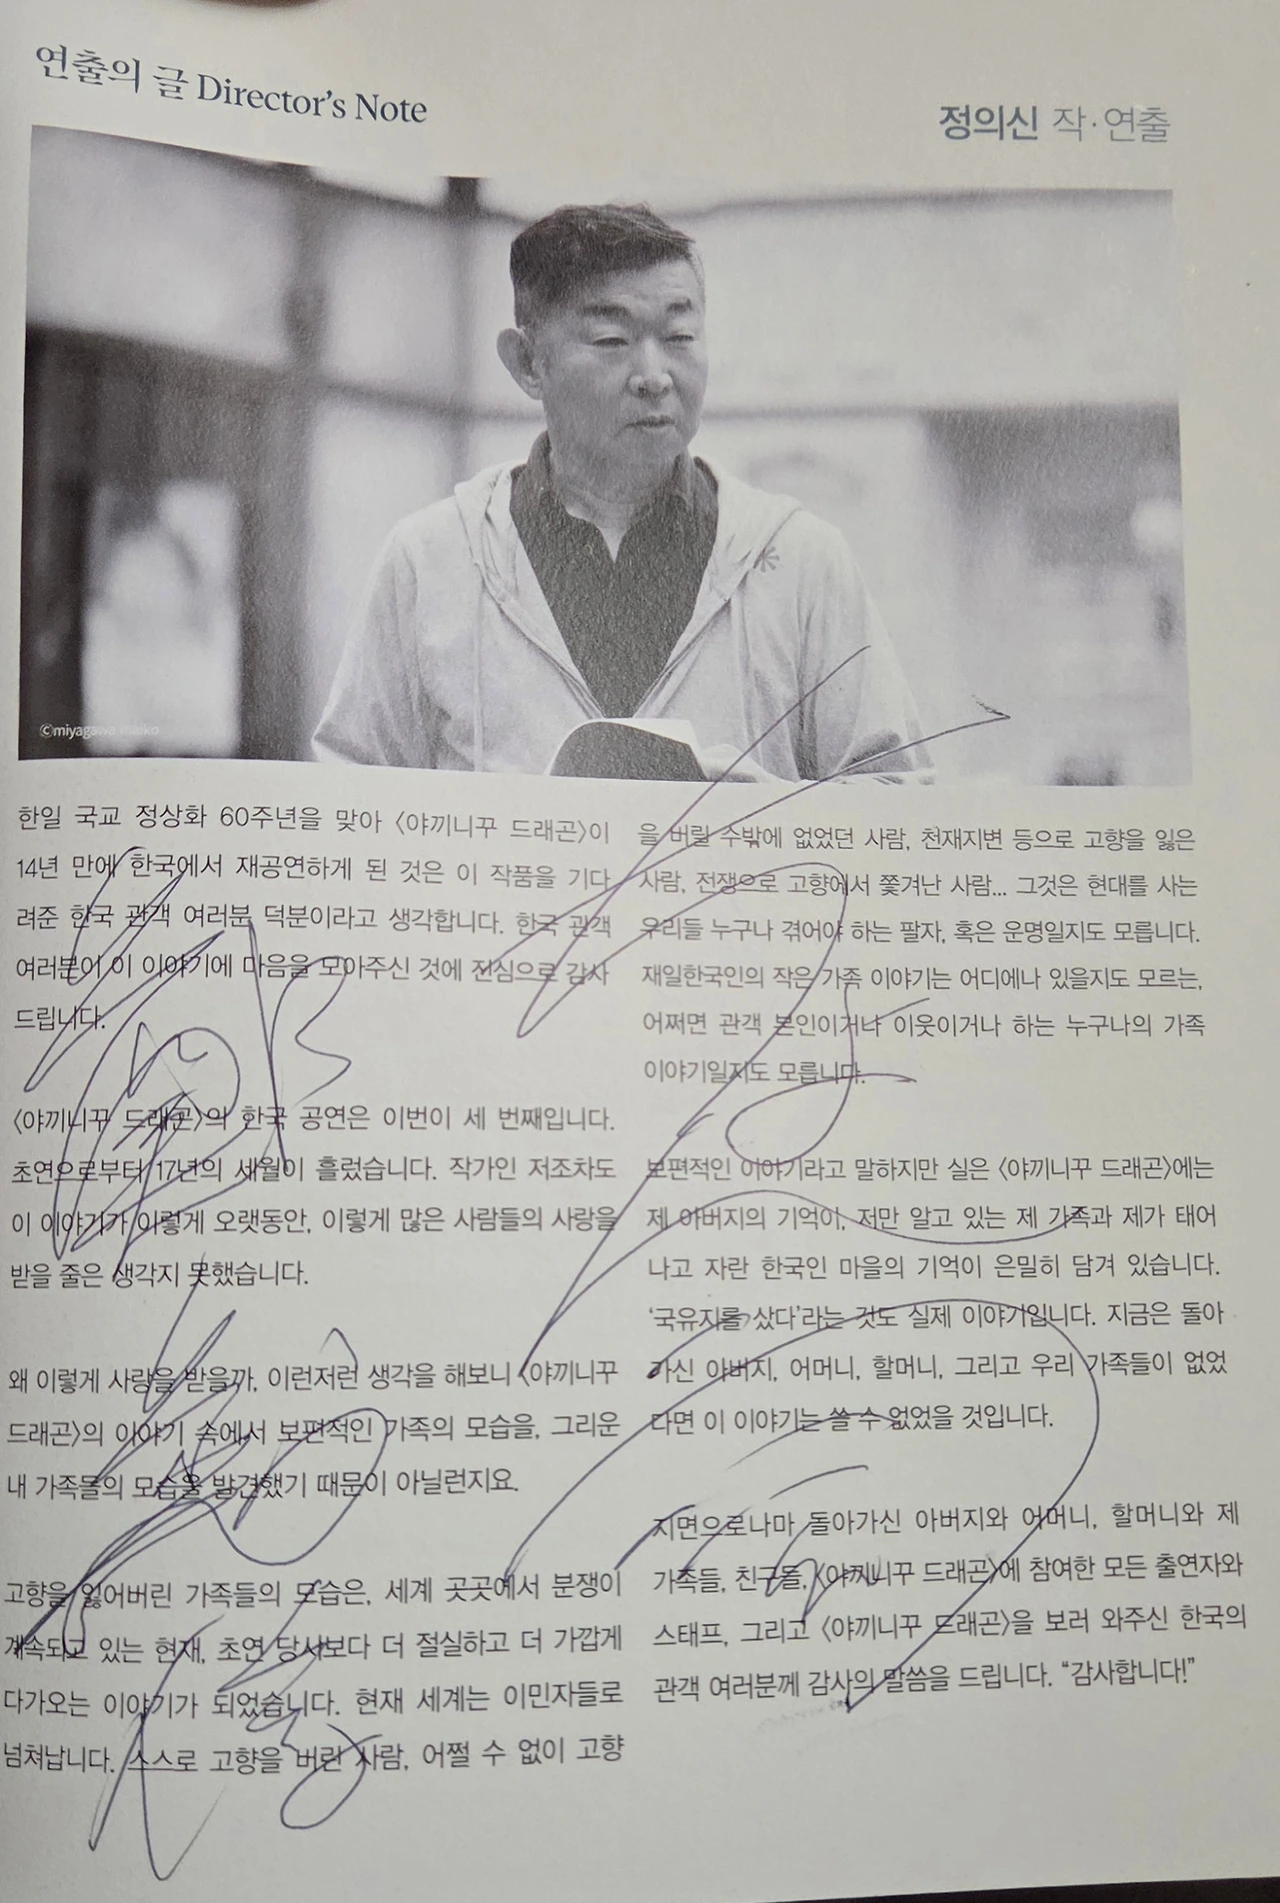 연출의 글 Director's Note
정의신 작·연출
©miyagawa maiko
한일 국교 정상화 60주년을 맞아 〈야끼니꾸 드래곤〉이
14년 만에 한국에서 재공연하게 된 것은 이 작품을 기다
려준 한국 관객 여러분 덕분이라고 생각합니다. 한국 관객
여러분이 이 이야기에 마음을 모아주신 것에 진심으로 감사
드립니다.
〈야끼니꾸 드래곤〉의 한국 공연은 이번이 세 번째입니다.
초연으로부터 17년의 세월이 흘렀습니다. 작가인 저조차도
이 이야기가 이렇게 오랫동안, 이렇게 많은 사람들의 사랑을
받을 줄은 생각지 못했습니다.
왜 이렇게 사랑을 받을까, 이런저런 생각을 해보니 〈야끼니꾸
드래곤〉의 이야기 속에서 보편적인 가족의 모습을, 그리운
내 가족들의 모습을 발견했기 때문이 아닐런지요.
고향을 잃어버린 가족들의 모습은, 세계 곳곳에서 분쟁이
계속되고 있는 현재, 초연 당시보다 더 절실하고 더 가깝게
다가오는 이야기가 되었습니다. 현재 세계는 이민자들로
넘쳐납니다. 스스로 고향을 버린 사람, 어쩔 수 없이 고향
을 버릴 수밖에 없었던 사람, 천재지변 등으로 고향을 잃은
사람, 전쟁으로 고향에서 쫓겨난 사람... 그것은 현대를 사는
우리들 누구나 겪어야 하는 팔자, 혹은 운명일지도 모릅니다.
재일한국인의 작은 가족 이야기는 어디에나 있을지도 모르는,
어쩌면 관객 본인이거나 이웃이거나 하는 누구나의 가족
이야기일지도 모릅니다.
보편적인 이야기라고 말하지만 실은 〈야끼니꾸 드래곤〉에는
제 아버지의 기억이, 저만 알고 있는 제 가족과 제가 태어
나고 자란 한국인 마을의 기억이 은밀히 담겨 있습니다.
'국유지를 샀다'라는 것도 실제 이야기입니다. 지금은 돌아
가신 아버지, 어머니, 할머니, 그리고 우리 가족들이 없었
다면 이 이야기는 쓸 수 없었을 것입니다.
지면으로나마 돌아가신 아버지와 어머니, 할머니와 제
가족들, 친구들, 〈야끼니꾸 드래곤〉에 참여한 모든 출연자와
스태프, 그리고 〈야끼니꾸 드래곤〉을 보러 와주신 한국의
관객 여러분께 감사의 말씀을 드립니다. "감사합니다!"